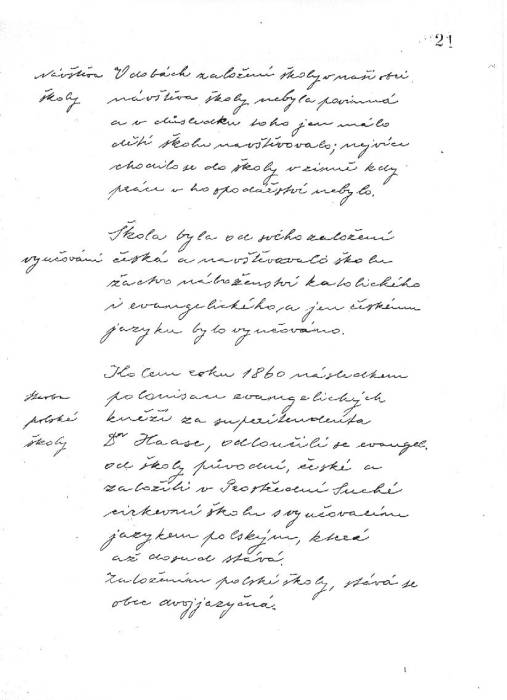 21
Návštěva V dobách založení školy v naší obci
školy návštěva školy nebyla povinná
a v důsledku toho jen málo
dětí školu navštěvovalo; nejvíce
chodilo se do školy v zimě kdy
práce v hospodářství nebylo.
Škola byla od svého založení
vyučování česká a navštěvovalo školu
žactvo náboženství katolického
i evangelického, a jen českému
jazyku bylo vyučováno.
Kolem roku 1860 následkem
polonisace evangelických
polské kněží za superitendenta
školy Dra Haase, odloučili se evangel.
od školy původní, české a
založili v Prostřední Suché
církevní školu s vyučovacím
jazykem polským, která
až dosud stává.
Založením polské školy, stává se
obec dvojjazyčná.